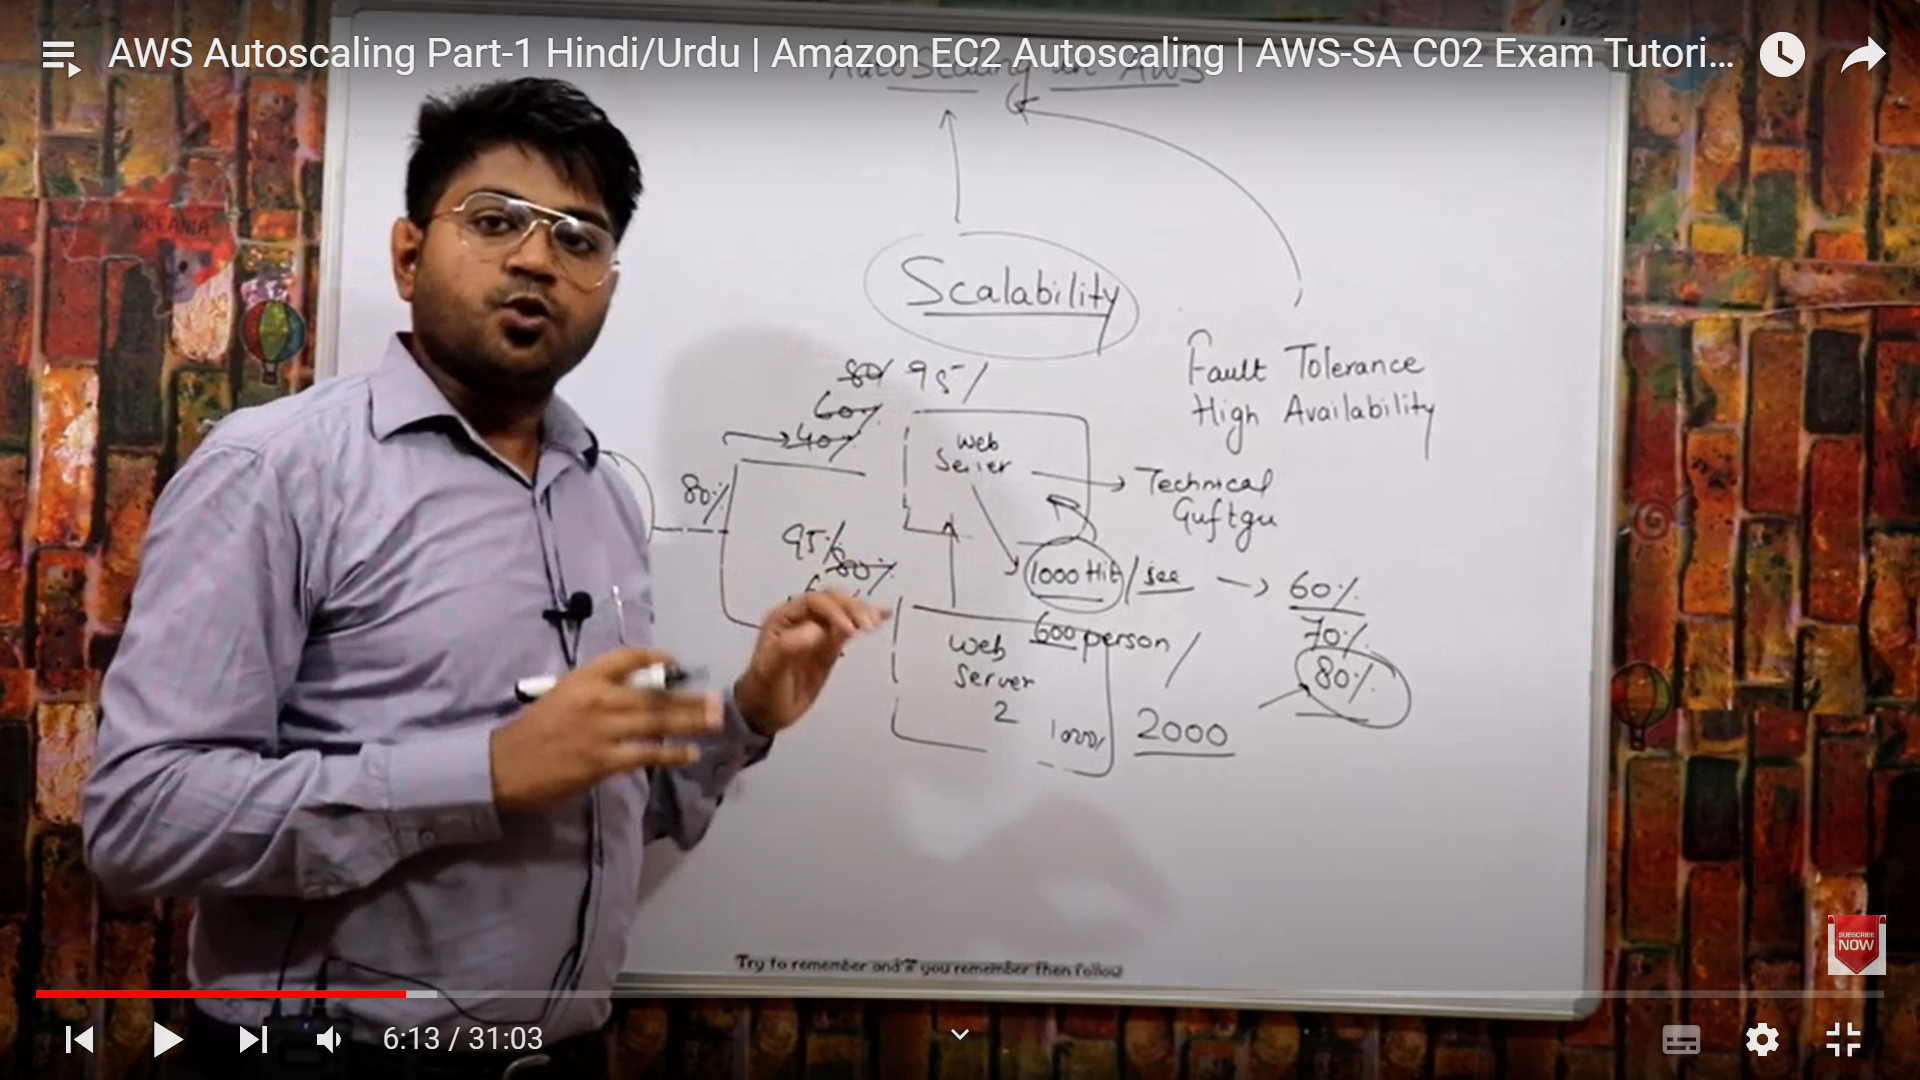 AWS Autoscaling Part-1 Hindi/Urdu | Amazon EC2 Autoscaling | AWS-SA C02 Exam Tutori...
AutoScaling in AWS
OCEANIA
Scalability
Fault Tolerance
High Availability
80% 95%
60%
40%
Web
Server
Technical
Guftgu
80%
95%
80%
1000 Hit/sec
60%
70%
80%
600 person /
Web
Server
2
2000
Try to remember and if you remember then follow
SUBSCRIBE
NOW
6:13 / 31:03